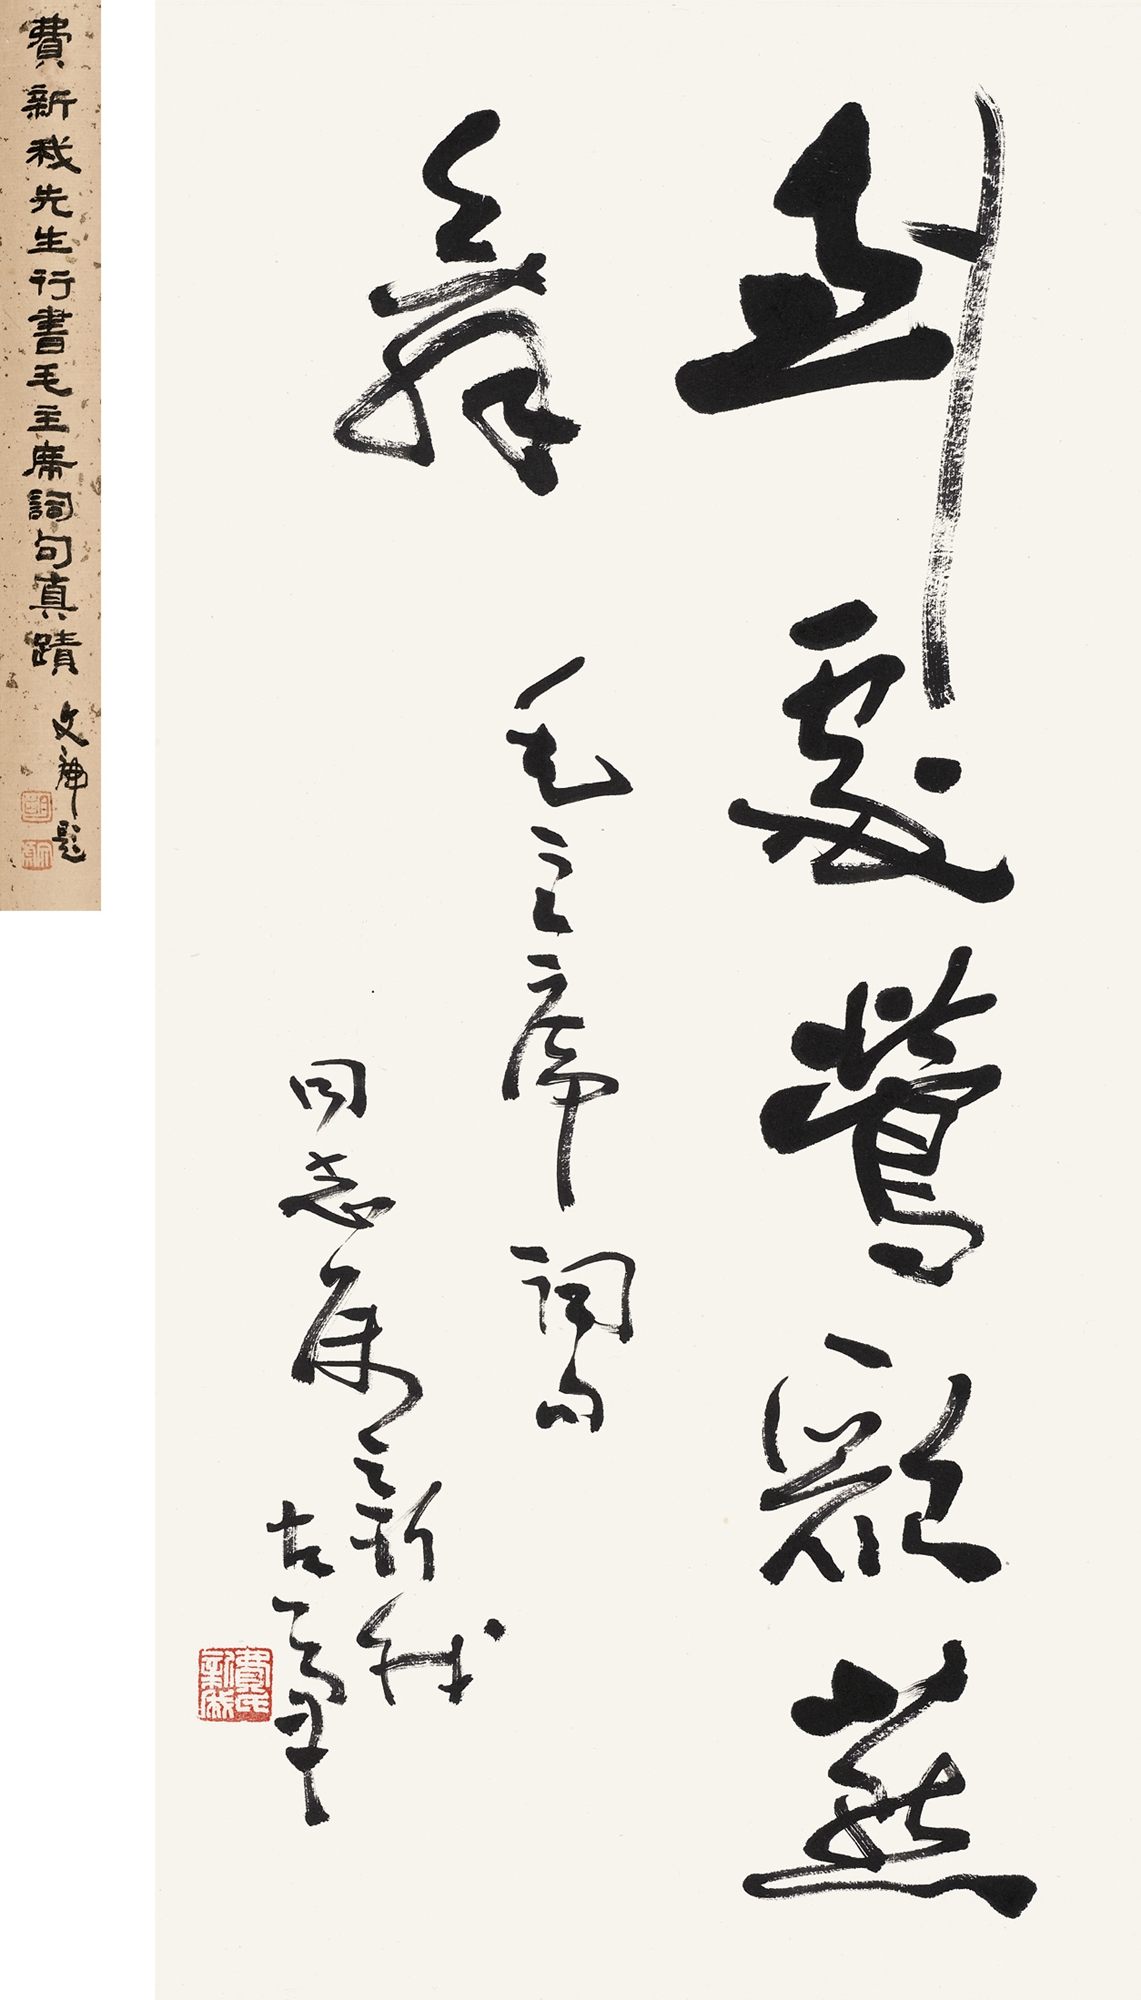 到處鶯歌燕
舞
毛主席詞句
同志属新我
左筆
費氏新我
費新我先生行書毛主席詞句真蹟
題